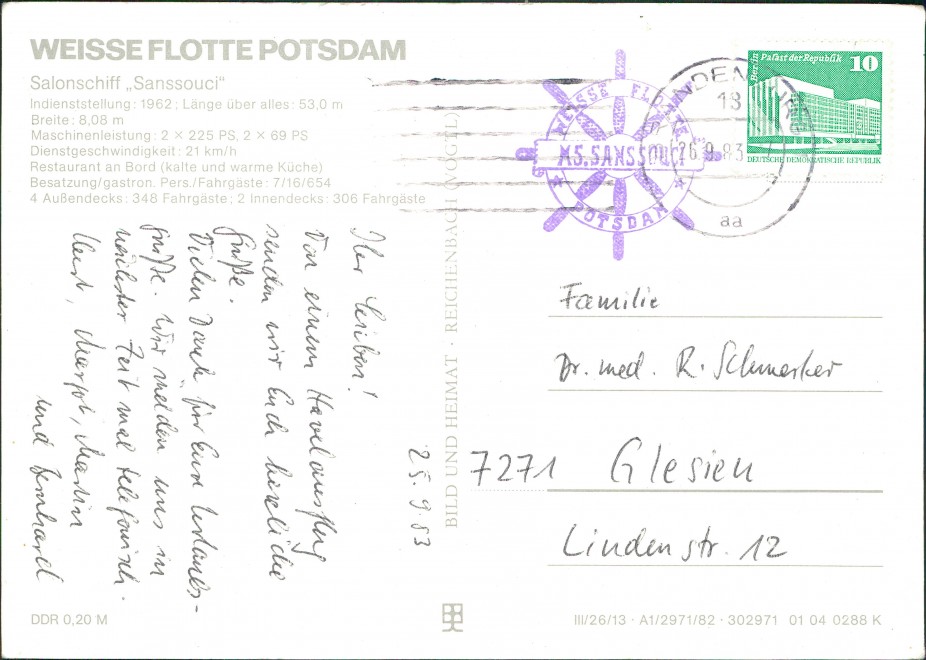 WEISSE FLOTTE POTSDAM
Salonschiff „Sanssouci“
Indienststellung: 1962; Länge über alles: 53,0 m
Breite: 8,08 m
Maschinenleistung: 2 × 225 PS, 2 × 69 PS
Dienstgeschwindigkeit: 21 km/h
Restaurant an Bord (kalte und warme Küche)
Besatzung/gastron. Pers./Fahrgäste: 7/16/654
4 Außendecks: 348 Fahrgäste; 2 Innendecks: 306 Fahrgäste
Ihr Lieben!
Von einem Havelausflug
senden wir Euch herzliche
Grüße.
Vielen Dank für Eure Urlaubs-
grüße. Wir melden uns in
nächster Zeit mal telefonisch.
Margot, Martin
und Bernhard
25.9.83
BILD UND HEIMAT · REICHENBACH (VOGTL)
WEISSE FLOTTE
MS. SANSSOUCI
POTSDAM
18
26.9.83
aa
Berlin Palast der Republik 10
DEUTSCHE DEMOKRATISCHE REPUBLIK
Familie
Dr. med. R. Schmerker
7271 Glesien
Lindenstr. 12
DDR 0,20 M
III/26/13 · A1/2971/82 · 302971 01 04 0288 K